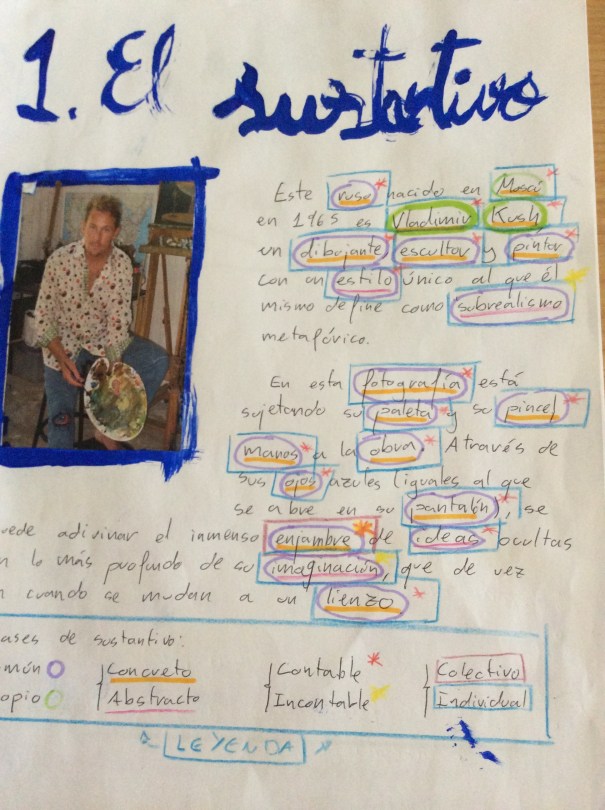 1. El sustantivo
Este ruso nacido en Moscú
en 1965 es Vladimir Kush,
un dibujante escultor y pintor
con un estilo único al que él
mismo define como subrealismo
metafórico.
En esta fotografía está
sujetando su paleta y su pincel,
manos a la obra. Através de
sus ojos azules (iguales al que
se abre en su pantalón), se
uede adivinar el inmenso enjambre de ideas ocultas
n lo más profundo de su imaginación, que de vez
n cuando se mudan a un lienzo.
ases de sustantivo:
mún { Concreto { Contable { Colectivo
opio { Abstracto { Incontable { Individual
LEYENDA